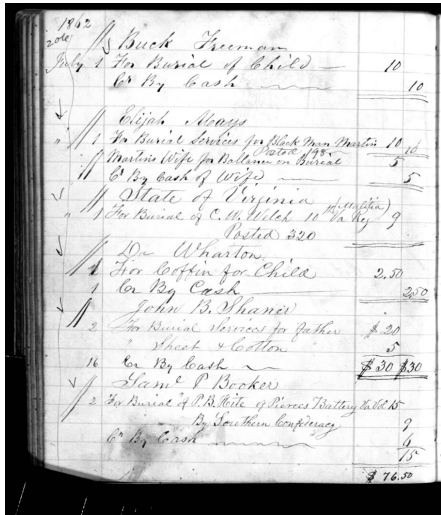 1862
Buck Freeman
July 1 For Burial of Child 10
Cr By Cash 10
Elijah Mays
" 1 For Burial Services for Black Man Martin 10
Posted 198 10
Martins Wife for Ballance on Burial 5
Cr By Cash of Wife 5
State of Virginia
" 1 For Burial of C. W. Welch 10 Va Reg 9
Posted 320
Dr Wharton
1 For Coffin for Child 2.50
1 Cr By Cash 2.50
John B. Shaner
2 For Burial Services for father $20
" Sheet & Cotton 5
16 Cr By Cash $30 $30
Saml P Booker
2 For Burial of P. B. Hite of Pierces Battery Va Vol 15
By Southern Confederacy 9
Cr By Cash 6
15
$76.50